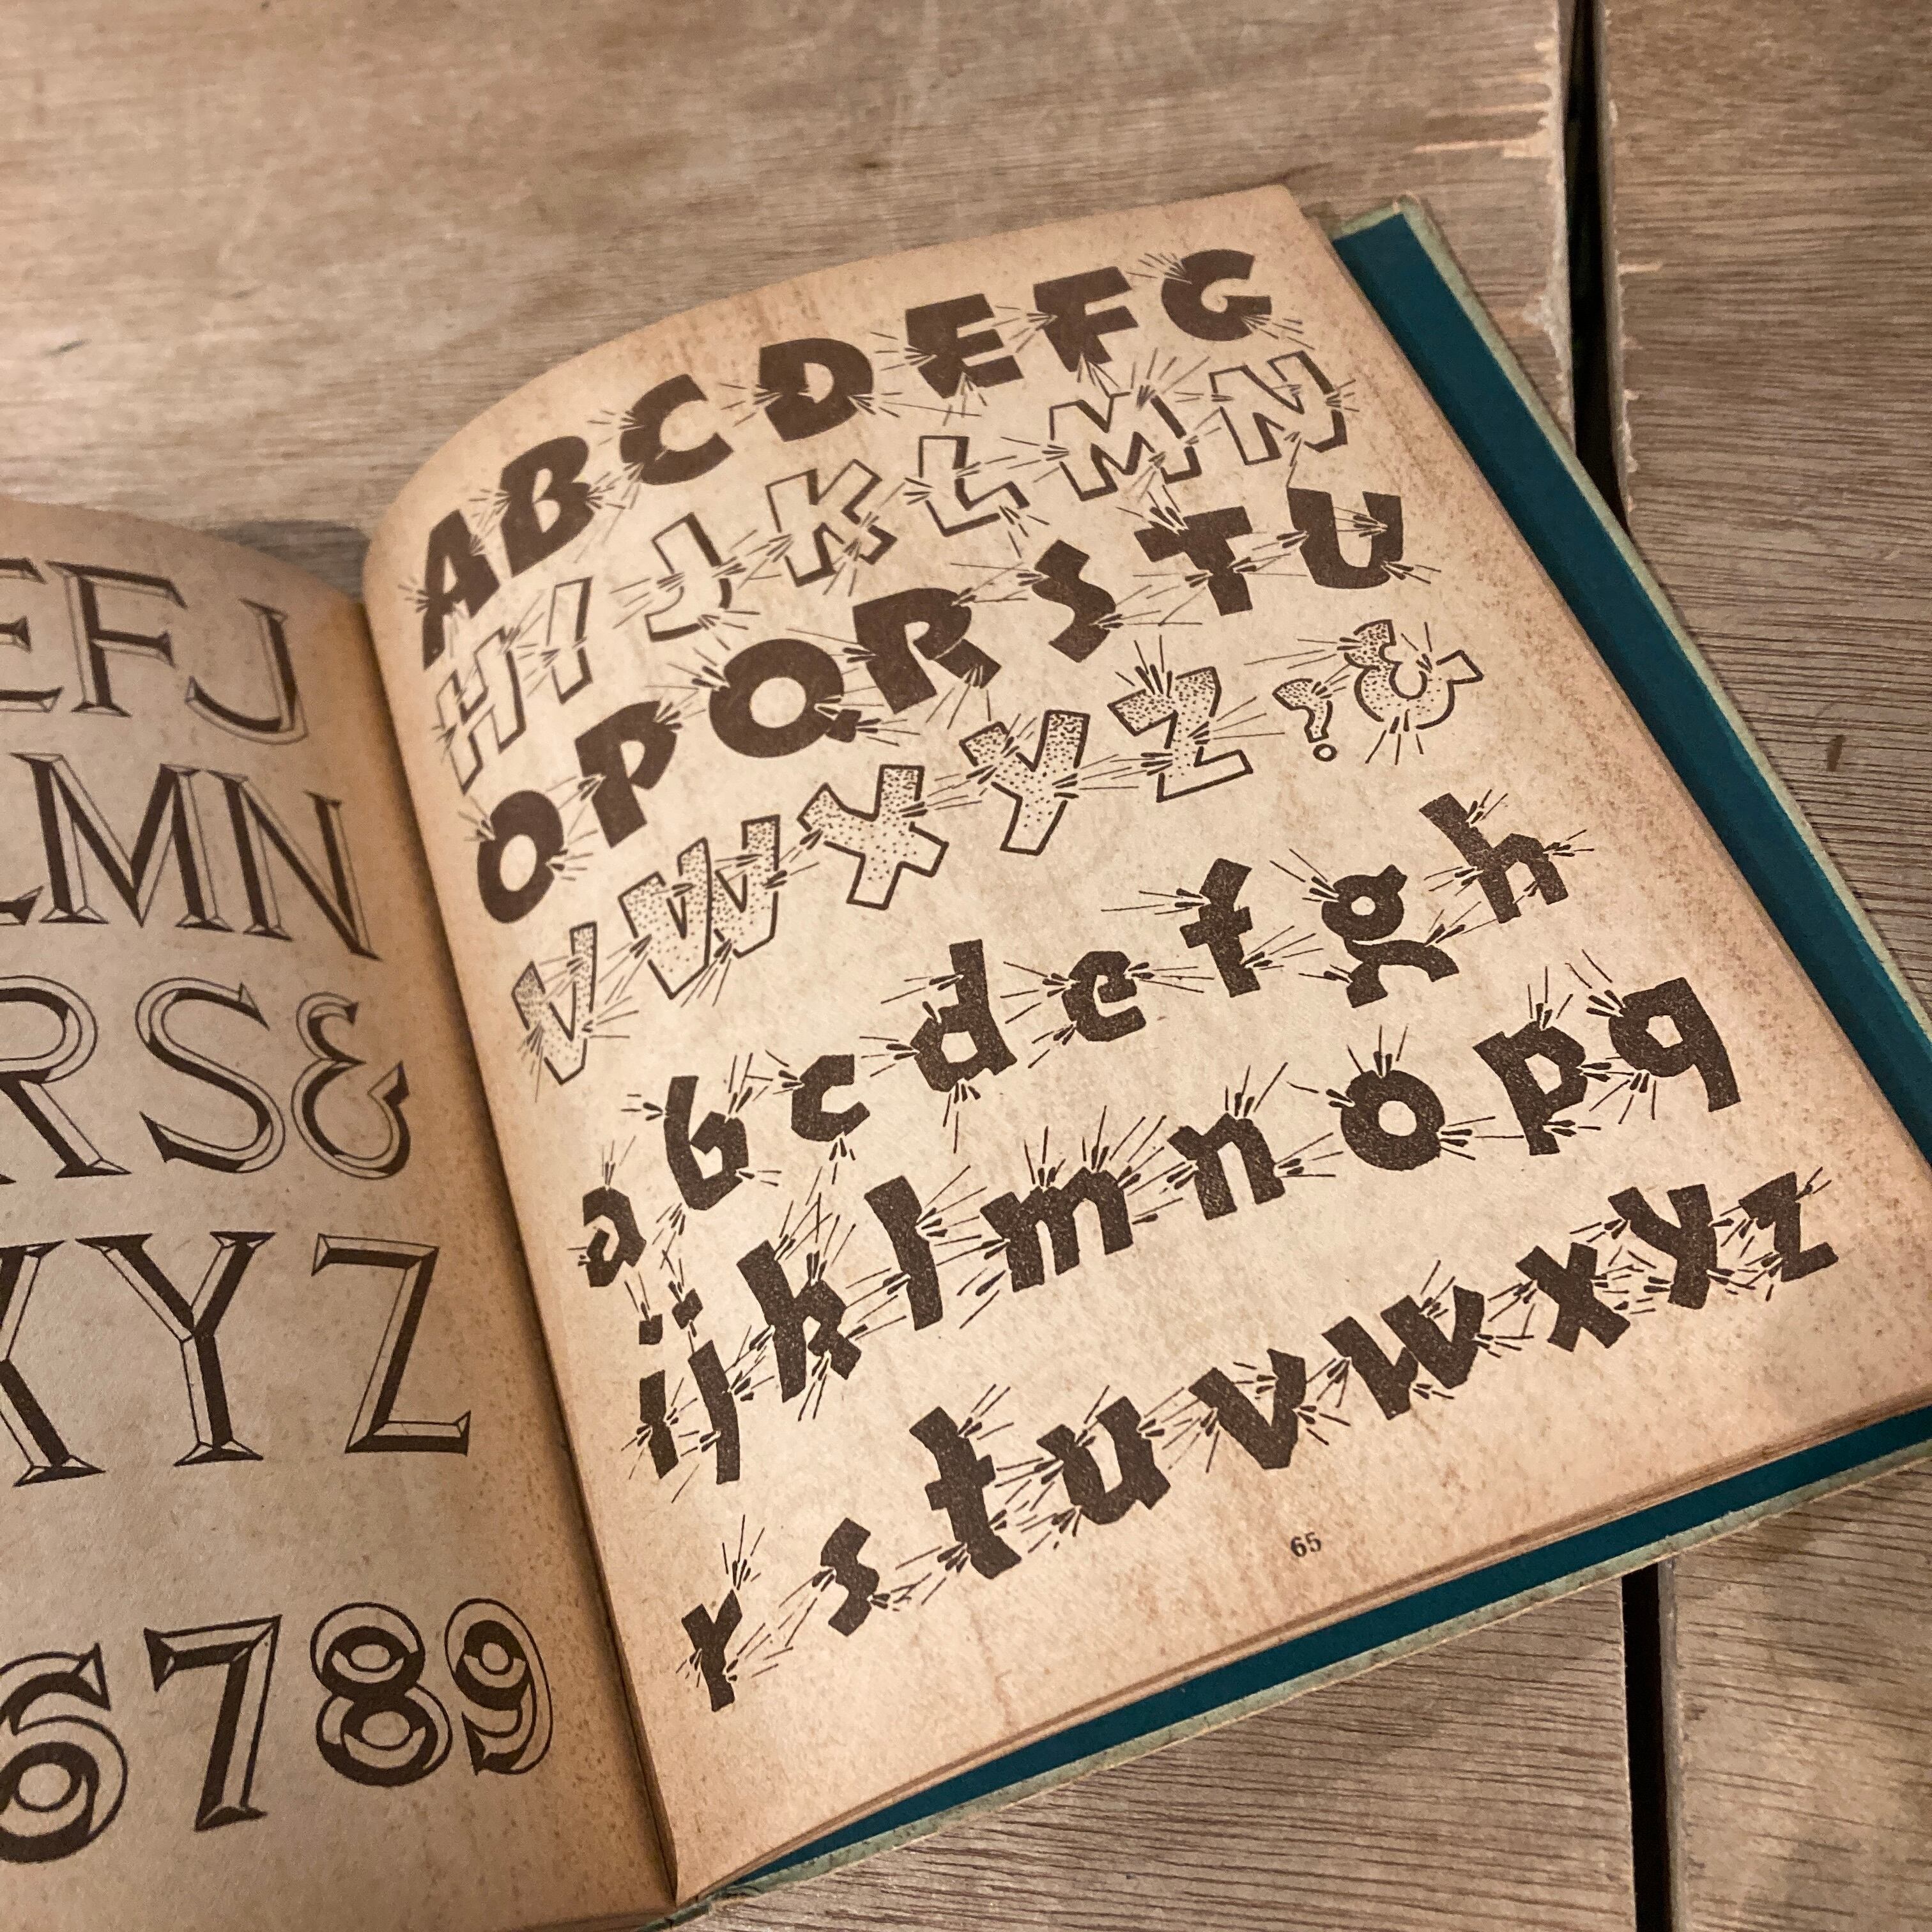 EFJ
LMN
RS&
XYZ
6789
ABCDEFG
HIJKLMN
OPQRSTU
VWXYZ?&
abcdefgh
ijklmnopq
rstuvwxyz
65